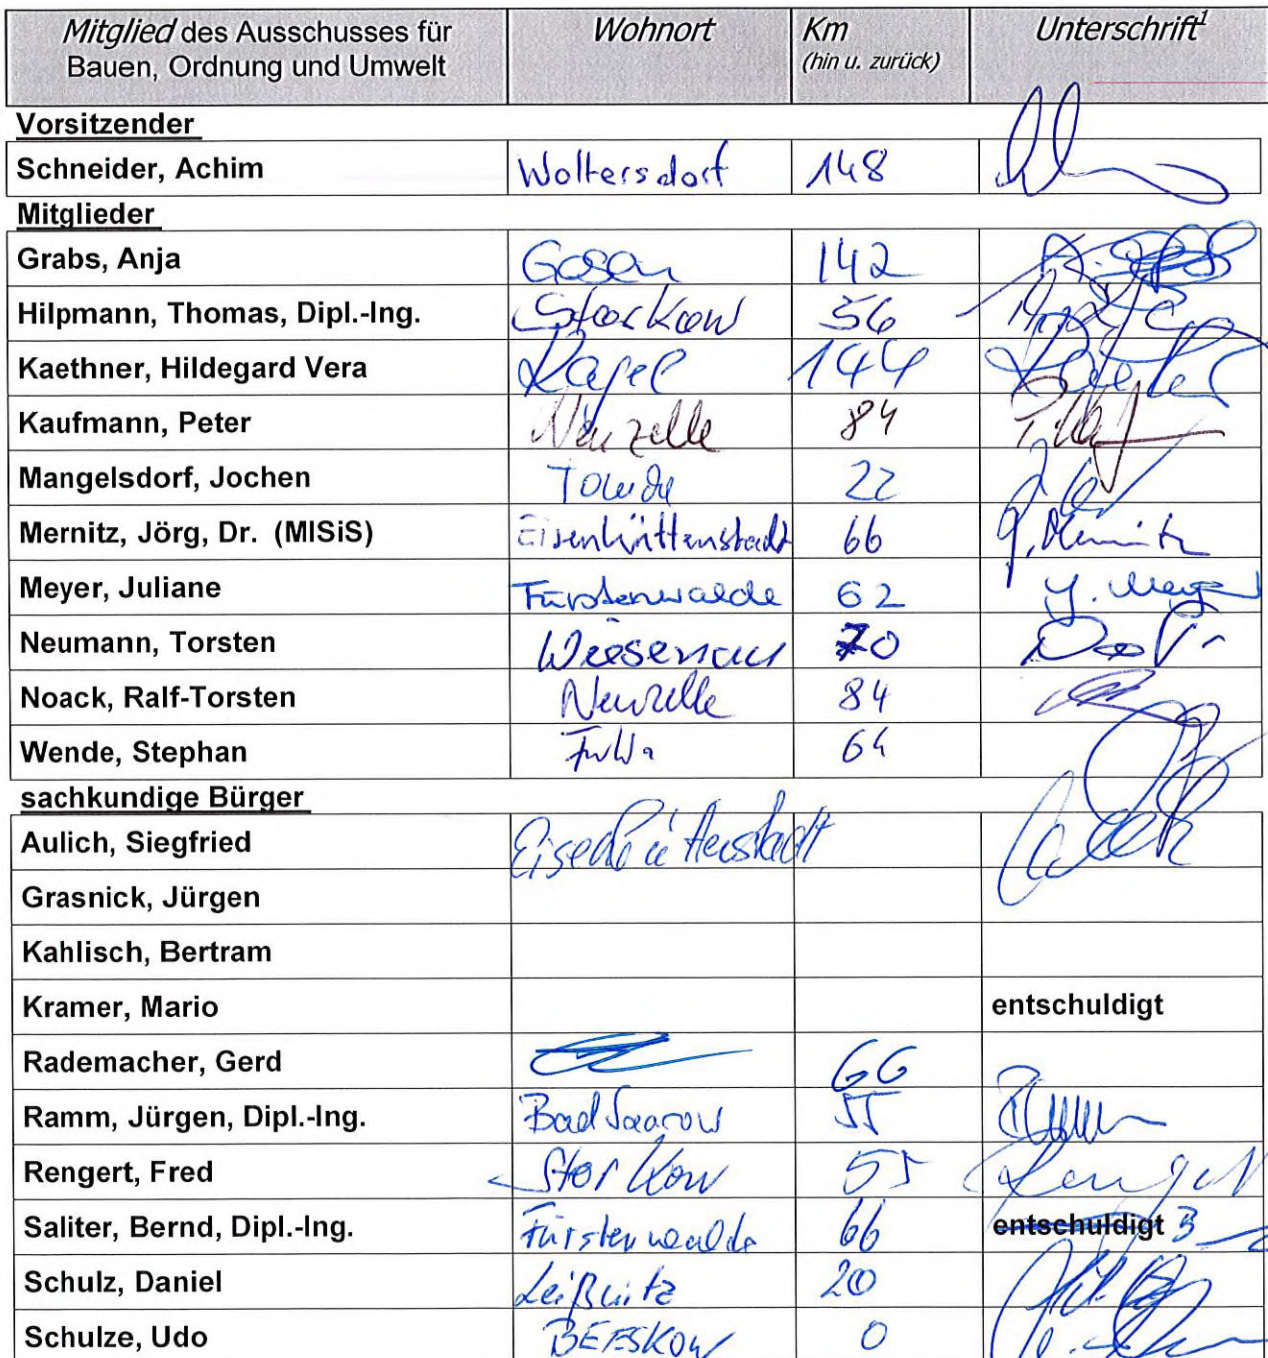 Mitglied des Ausschusses für Bauen, Ordnung und Umwelt Wohnort Km (hin u. zurück) Unterschrift¹
Vorsitzender
Schneider, Achim Woltersdorf 148
Mitglieder
Grabs, Anja Gosen 142
Hilpmann, Thomas, Dipl.-Ing. Storkow 56
Kaethner, Hildegard Vera Kagel 144
Kaufmann, Peter Neuzelle 84
Mangelsdorf, Jochen 22
Mernitz, Jörg, Dr. (MISiS) Eisenhüttenstadt 66 J. Mernitz
Meyer, Juliane Fürstenwalde 62 J. Meyer
Neumann, Torsten Wiesenau 70
Noack, Ralf-Torsten Neuzelle 84
Wende, Stephan FuWa 64
sachkundige Bürger
Aulich, Siegfried Eisenhüttenstadt
Grasnick, Jürgen
Kahlisch, Bertram
Kramer, Mario entschuldigt
Rademacher, Gerd 66
Ramm, Jürgen, Dipl.-Ing. Bad Saarow 55
Rengert, Fred Storkow 55 Rengert
Saliter, Bernd, Dipl.-Ing. Fürstenwalde 66 entschuldigt
Schulz, Daniel Leißnitz 20
Schulze, Udo BEESKOW 0